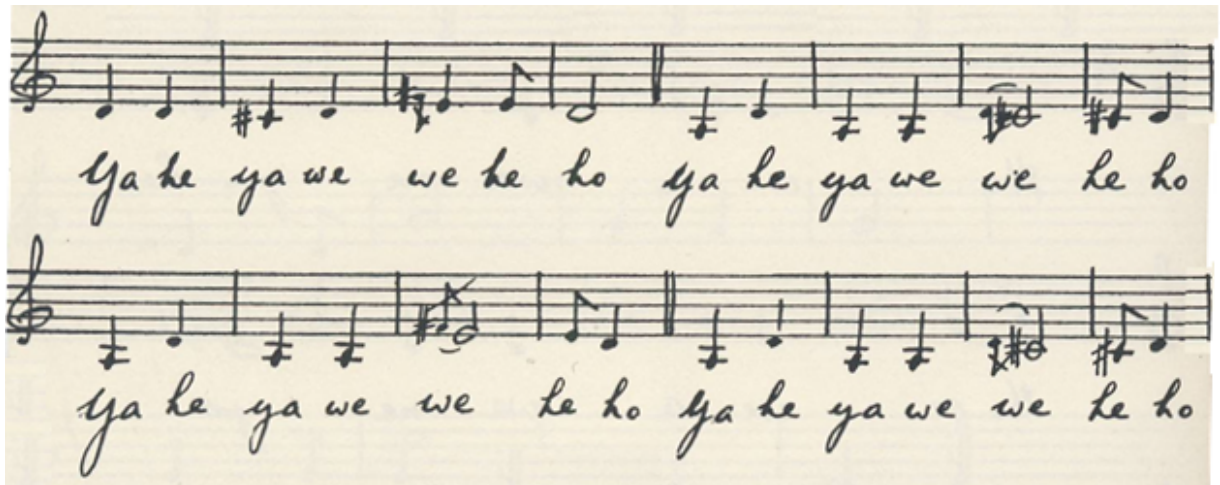 Ya he ya we we he ho ya he ya we we he ho
Ya he ya we we he ho ya he ya we we he ho